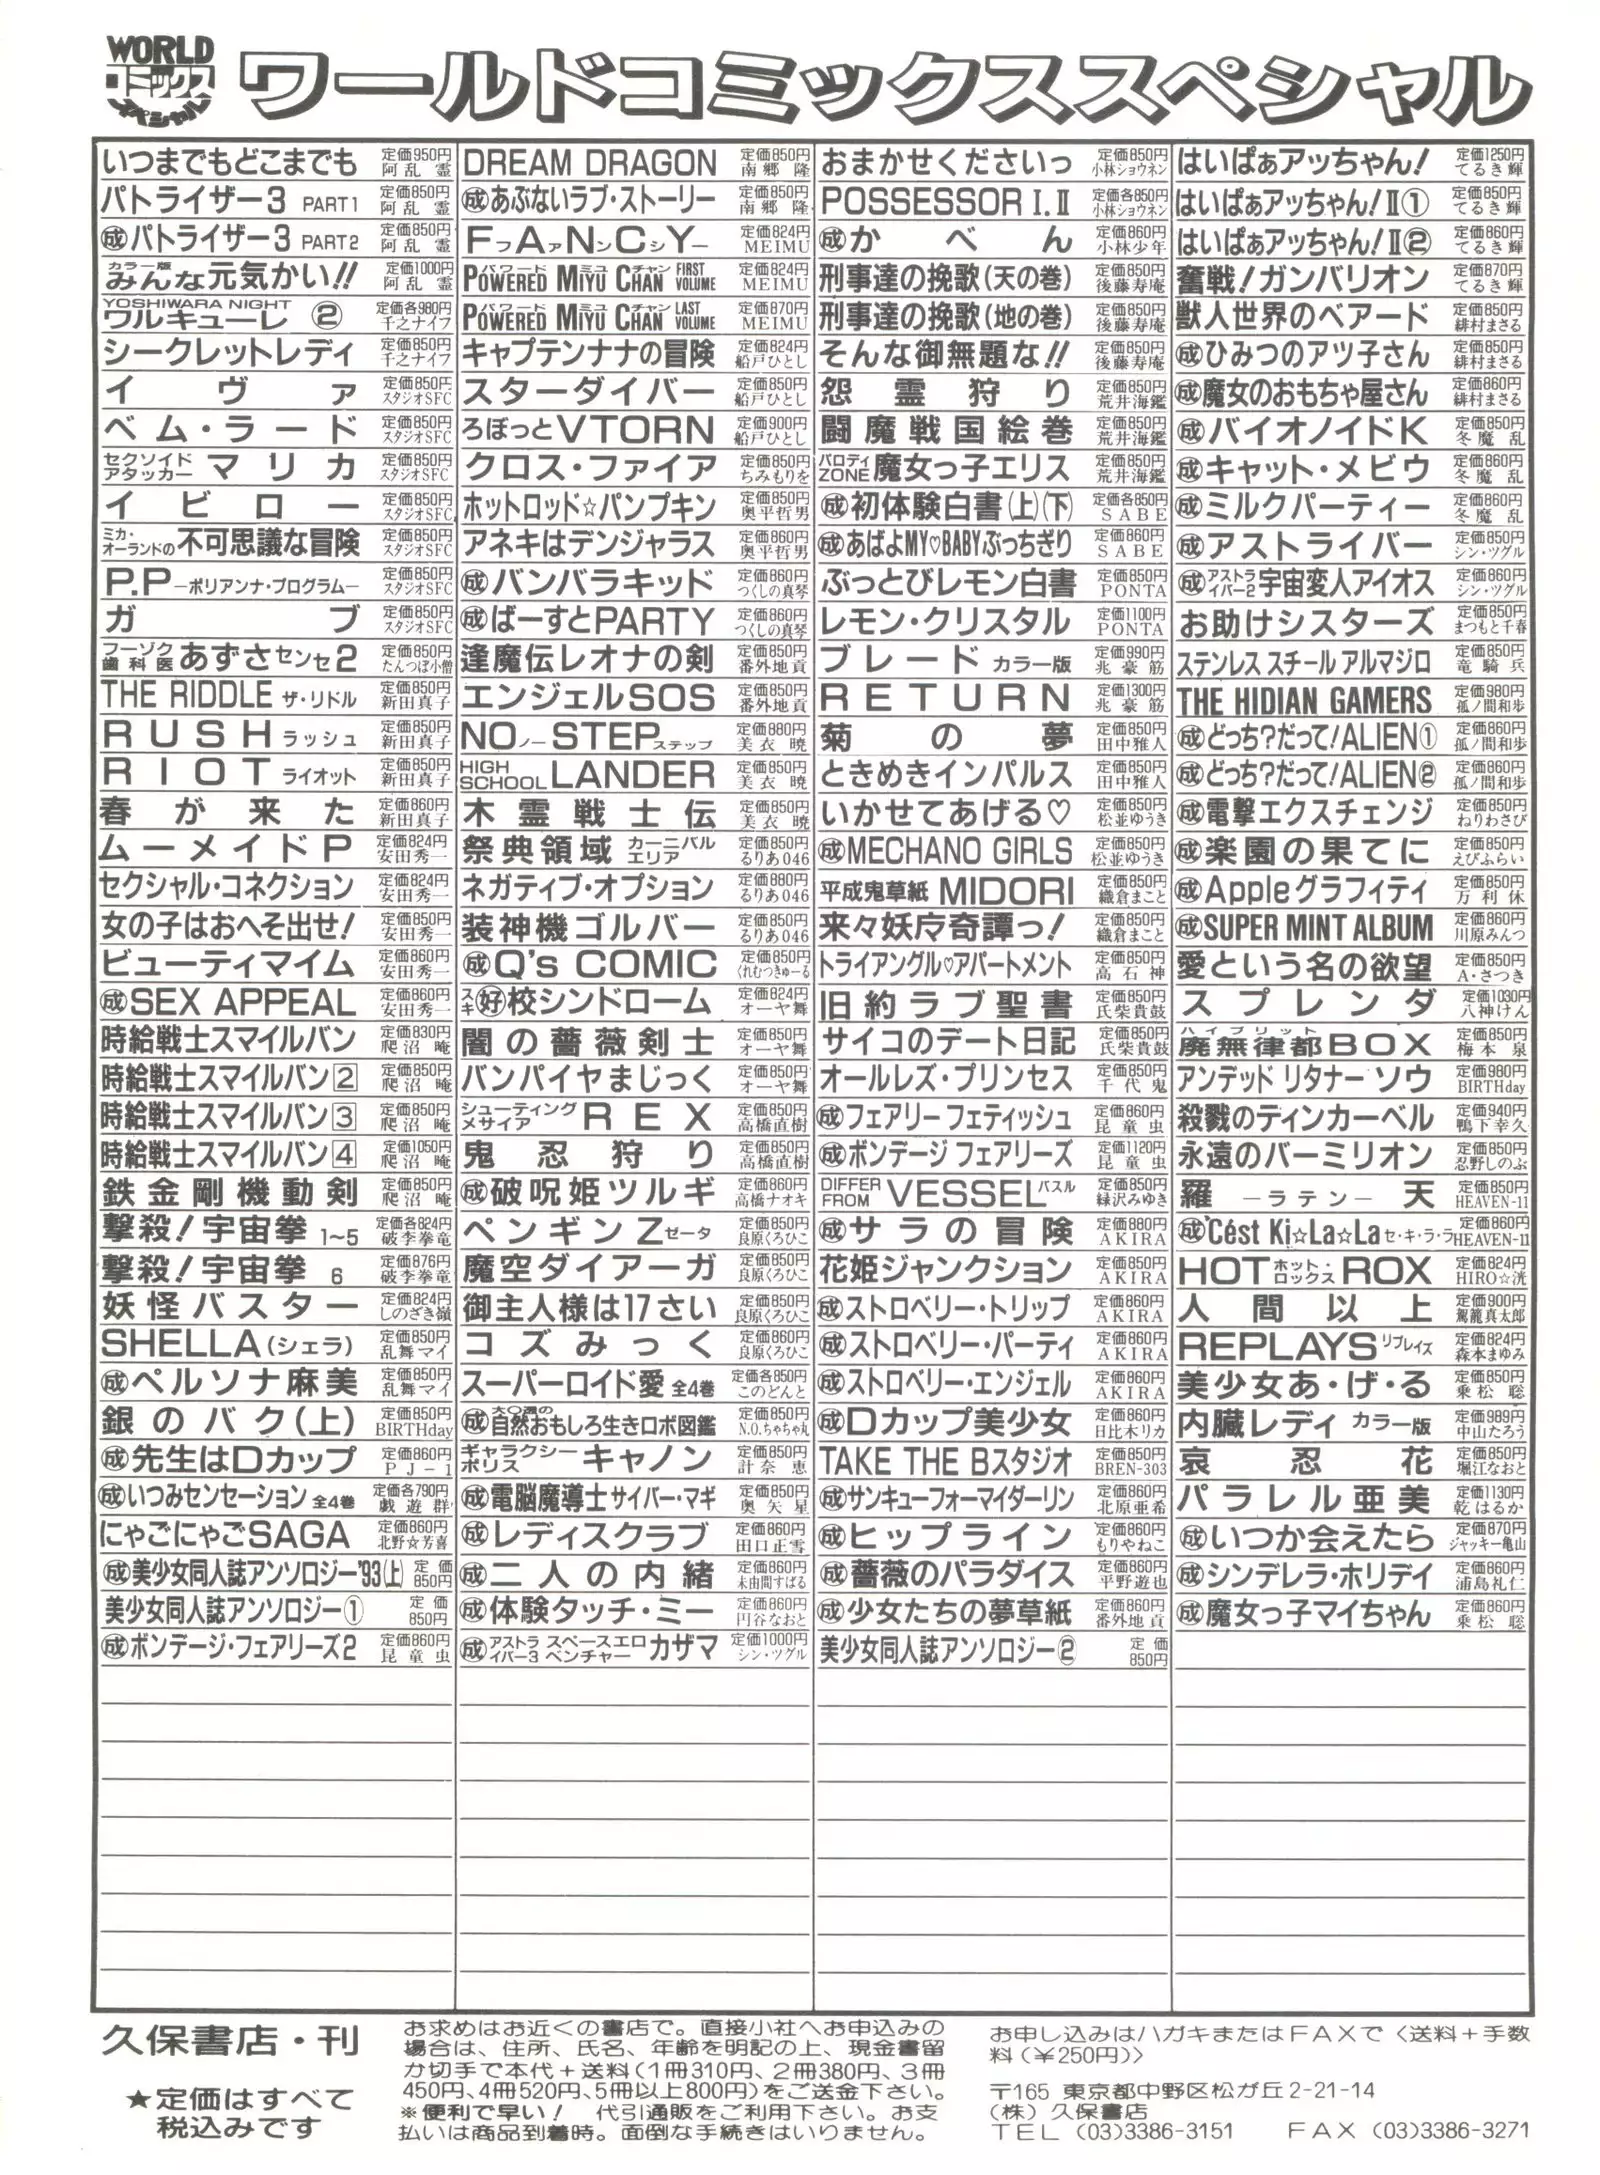 WORLD
コミックス
スペシャル
ワールドコミックススペシャル
いつまでもどこまでも 定価950円 阿乱霊
パトライザー3 PART1 定価850円 阿乱霊
成パトライザー3 PART2 定価850円 阿乱霊
カラー版 みんな元気かい!! 定価1000円 阿乱霊
YOSHIWARA NIGHT ワルキューレ ② 定価各980円 千之ナイフ
シークレットレディ 定価850円 千之ナイフ
イヴァ 定価850円 スタジオSFC
ベム・ラード 定価850円 スタジオSFC
セクソイドアタッカー マリカ 定価850円 スタジオSFC
イビロー 定価850円 スタジオSFC
ミカ・オーランドの不可思議な冒険 定価850円 スタジオSFC
P.P―ポリアンナ・プログラム― 定価850円 スタジオSFC
ガブ 定価850円 スタジオSFC
フーゾク歯科医 あずさセンセ2 定価850円 たんつぼ小僧
THE RIDDLE ザ・リドル 定価850円 新田真子
RUSH ラッシュ 定価850円 新田真子
RIOT ライオット 定価850円 新田真子
春が来た 定価860円 新田真子
ムーメイドP 定価824円 安田秀一
セクシャル・コネクション 定価824円 安田秀一
女の子はおへそ出せ! 定価850円 安田秀一
ビューティマイム 定価860円 安田秀一
成SEX APPEAL 定価860円 安田秀一
時給戦士スマイルバン 定価830円 爬沼庵
時給戦士スマイルバン2 定価850円 爬沼庵
時給戦士スマイルバン3 定価850円 爬沼庵
時給戦士スマイルバン4 定価1050円 爬沼庵
鉄金剛機動剣 定価850円 爬沼庵
撃殺!宇宙拳 1~5 定価各824円 破李拳竜
撃殺!宇宙拳 6 定価876円 破李拳竜
妖怪バスター 定価824円 しのざき嶺
SHELLA(シェラ) 定価850円 乱舞マイ
成ペルソナ麻美 定価850円 乱舞マイ
銀のバク(上) 定価850円 BIRTHday
成先生はDカップ 定価860円 PJ-1
成いつみセンセーション 全4巻 定価各790円 戯遊群
にゃごにゃごSAGA 定価860円 北野☆芳喜
成美少女同人誌アンソロジー'93(上) 定価850円
美少女同人誌アンソロジー① 定価850円
成ボンデージ・フェアリーズ2 定価860円 昆童虫
DREAM DRAGON 定価850円 南郷隆
成あぶないラブ・ストーリー 定価850円 南郷隆
FファAァNンCシYー 定価824円 MEIMU
POWERED パワード MIYU ミユ CHAN チャン FIRST VOLUME 定価824円 MEIMU
POWERED パワード MIYU ミユ CHAN チャン LAST VOLUME 定価870円 MEIMU
キャプテンナナの冒険 定価824円 船戸ひとし
スターダイバー 定価850円 船戸ひとし
ろぼっとVTORN 定価900円 船戸ひとし
クロス・ファイア 定価850円 ちみもりを
ホットロッド☆パンプキン 定価850円 奥平哲男
アネキはデンジャラス 定価860円 奥平哲男
成バンバラキッド 定価860円 つくしの真琴
成ばーすとPARTY 定価860円 つくしの真琴
逢魔伝レオナの剣 定価850円 番外地貢
エンジェルSOS 定価850円 番外地貢
NOノーSTEPステップ 定価880円 美衣暁
HIGH SCHOOL LANDER 定価850円 美衣暁
木霊戦士伝 定価850円 美衣暁
祭典領域 カーニバルエリア 定価850円 るりあ046
ネガティブ・オプション 定価880円 るりあ046
装神機ゴルバー 定価850円 るりあ046
成Q's COMIC 定価850円 くれむつきゅーる
スキ好校シンドローム 定価824円 オーヤ舞
闇の薔薇剣士 定価850円 オーヤ舞
バンパイヤまじっく 定価850円 オーヤ舞
シューティングメサイア REX 定価850円 高橋直樹
鬼忍狩り 定価850円 高橋直樹
成破呪姫ツルギ 定価860円 高橋ナオキ
ペンギンZゼータ 定価850円 良原くろひこ
魔空ダイアーガ 定価850円 良原くろひこ
御主人様は17さい 定価850円 良原くろひこ
コズみっく 定価860円 良原くろひこ
スーパーロイド愛 全4巻 定価各850円 このどんと
成大〇選の自然おもしろ生きロボ図鑑 定価850円 N.O.ちゃちゃ丸
ギャラクシーポリス キャノン 定価850円 計奈恵
成電脳魔導士サイバー・マギ 定価850円 奥矢星
成レディスクラブ 定価860円 田口正雪
成二人の内緒 定価860円 未由間すばる
成体験タッチ・ミー 定価860円 円谷なおと
成アストライバー3 スペースエロベンチャー カザマ 定価1000円 シン・ツグル
おまかせくださいっ 定価850円 小林ショウネン
POSSESSOR I.II 定価各850円 小林ショウネン
成かべん 定価860円 小林少年
刑事達の挽歌(天の巻) 定価850円 後藤寿庵
刑事達の挽歌(地の巻) 定価850円 後藤寿庵
そんな御無題な!! 定価850円 後藤寿庵
怨霊狩り 定価850円 荒井海鑑
闘魔戦国絵巻 定価850円 荒井海鑑
パロディZONE魔女っ子エリス 定価850円 荒井海鑑
成初体験白書(上)(下) 定価各850円 SABE
成あばよMY♡BABYぶっちぎり 定価860円 SABE
ぶっとびレモン白書 定価850円 PONTA
レモン・クリスタル 定価1100円 PONTA
ブレード カラー版 定価990円 兆豪筋
RETURN 定価1300円 兆豪筋
菊の夢 定価850円 田中雅人
ときめきインパルス 定価850円 田中雅人
いかせてあげる♡ 定価850円 松並ゆうき
成MECHANO GIRLS 定価850円 松並ゆうき
平成鬼草紙 MIDORI 定価850円 織倉まこと
来々妖庁奇譚っ! 定価850円 織倉まこと
トライアングル♡アパートメント 定価850円 高石神
旧約ラブ聖書 定価850円 氏柴貴鼓
サイコのデート日記 定価850円 氏柴貴鼓
オールレズ・プリンセス 定価850円 千代鬼
成フェアリーフェティッシュ 定価860円 昆童虫
成ボンデージフェアリーズ 定価1120円 昆童虫
DIFFER FROM VESSELバスル 定価850円 緑沢みゆき
成サラの冒険 定価880円 AKIRA
花姫ジャンクション 定価850円 AKIRA
成ストロベリー・トリップ 定価860円 AKIRA
成ストロベリー・パーティ 定価860円 AKIRA
成ストロベリー・エンジェル 定価860円 AKIRA
成Dカップ美少女 定価860円 日比木リカ
TAKE THE Bスタジオ 定価850円 BREN-303
成サンキューフォーマイダーリン 定価860円 北原亜希
成ヒップライン 定価860円 もりやねこ
成薔薇のパラダイス 定価860円 平野遊也
成少女たちの夢草紙 定価860円 番外地貢
美少女同人誌アンソロジー② 定価850円
はいぱぁアッちゃん! 定価1250円 てるき輝
はいぱぁアッちゃん!II① 定価850円 てるき輝
はいぱぁアッちゃん!II② 定価860円 てるき輝
奮戦!ガンバリオン 定価870円 てるき輝
獣人世界のベアード 定価850円 緋村まさる
成ひみつのアツ子さん 定価850円 緋村まさる
成魔女のおもちゃ屋さん 定価860円 緋村まさる
成バイオノイドK 定価850円 冬魔乱
成キャット・メビウ 定価860円 冬魔乱
成ミルクパーティー 定価860円 冬魔乱
成アストライバー 定価850円 シン・ツグル
成アストライバー2宇宙変人アイオス 定価860円 シン・ツグル
お助けシスターズ 定価850円 まつもと千春
ステンレススチールアルマジロ 定価850円 竜騎兵
THE HIDIAN GAMERS 定価980円 孤ノ間和歩
成どっち?だって!ALIEN① 定価860円 孤ノ間和歩
成どっち?だって!ALIEN② 定価860円 孤ノ間和歩
成電撃エクスチェンジ 定価850円 ねりわさび
成楽園の果てに 定価850円 えびふらい
成Appleグラフィティ 定価850円 万利休
成SUPER MINT ALBUM 定価860円 川原みんつ
愛という名の欲望 定価850円 A・さつき
スプレンダ 定価1030円 八神けん
ハイブリット 廃無律都BOX 定価850円 梅本泉
アンデッドリタナーソウ 定価980円 BIRTHday
殺戮のティンカーベル 定価940円 鴨下幸久
永遠のバーミリオン 定価850円 忍野しのぶ
羅―ラテン―天 定価850円 HEAVEN-11
成'Cést Ki☆La☆Laセ・キ・ラ・ラ 定価860円 HEAVEN-11
HOTホット・ロックスROX 定価824円 HIRO☆洸
人間以上 定価900円 駕籠真太郎
REPLAYSリプレイズ 定価824円 森本まゆみ
美少女あ・げ・る 定価850円 乗松聡
内臓レディ カラー版 定価989円 中山たろう
哀忍花 定価850円 堀江なおと
パラレル亜美 定価1130円 乾はるか
成いつか会えたら 定価870円 ジャッキー亀山
成シンデレラ・ホリデイ 定価860円 浦島礼仁
成魔女っ子マイちゃん 定価860円 乗松聡
久保書店・刊
★定価はすべて
税込みです
お求めはお近くの書店で。直接小社へお申込みの
場合は、住所、氏名、年齢を明記の上、現金書留
か切手で本代+送料(1冊310円、2冊380円、3冊
450円、4冊520円、5冊以上800円)をご送金下さい。
※便利で早い! 代引通販をご利用下さい。お支
払いは商品到着時。面倒な手続きはいりません。
お申し込みはハガキまたはFAXで〈送料+手数
料(¥250円)〉
〒165 東京都中野区松が丘2-21-14
(株)久保書店
TEL (03)3386-3151 FAX (03)3386-3271